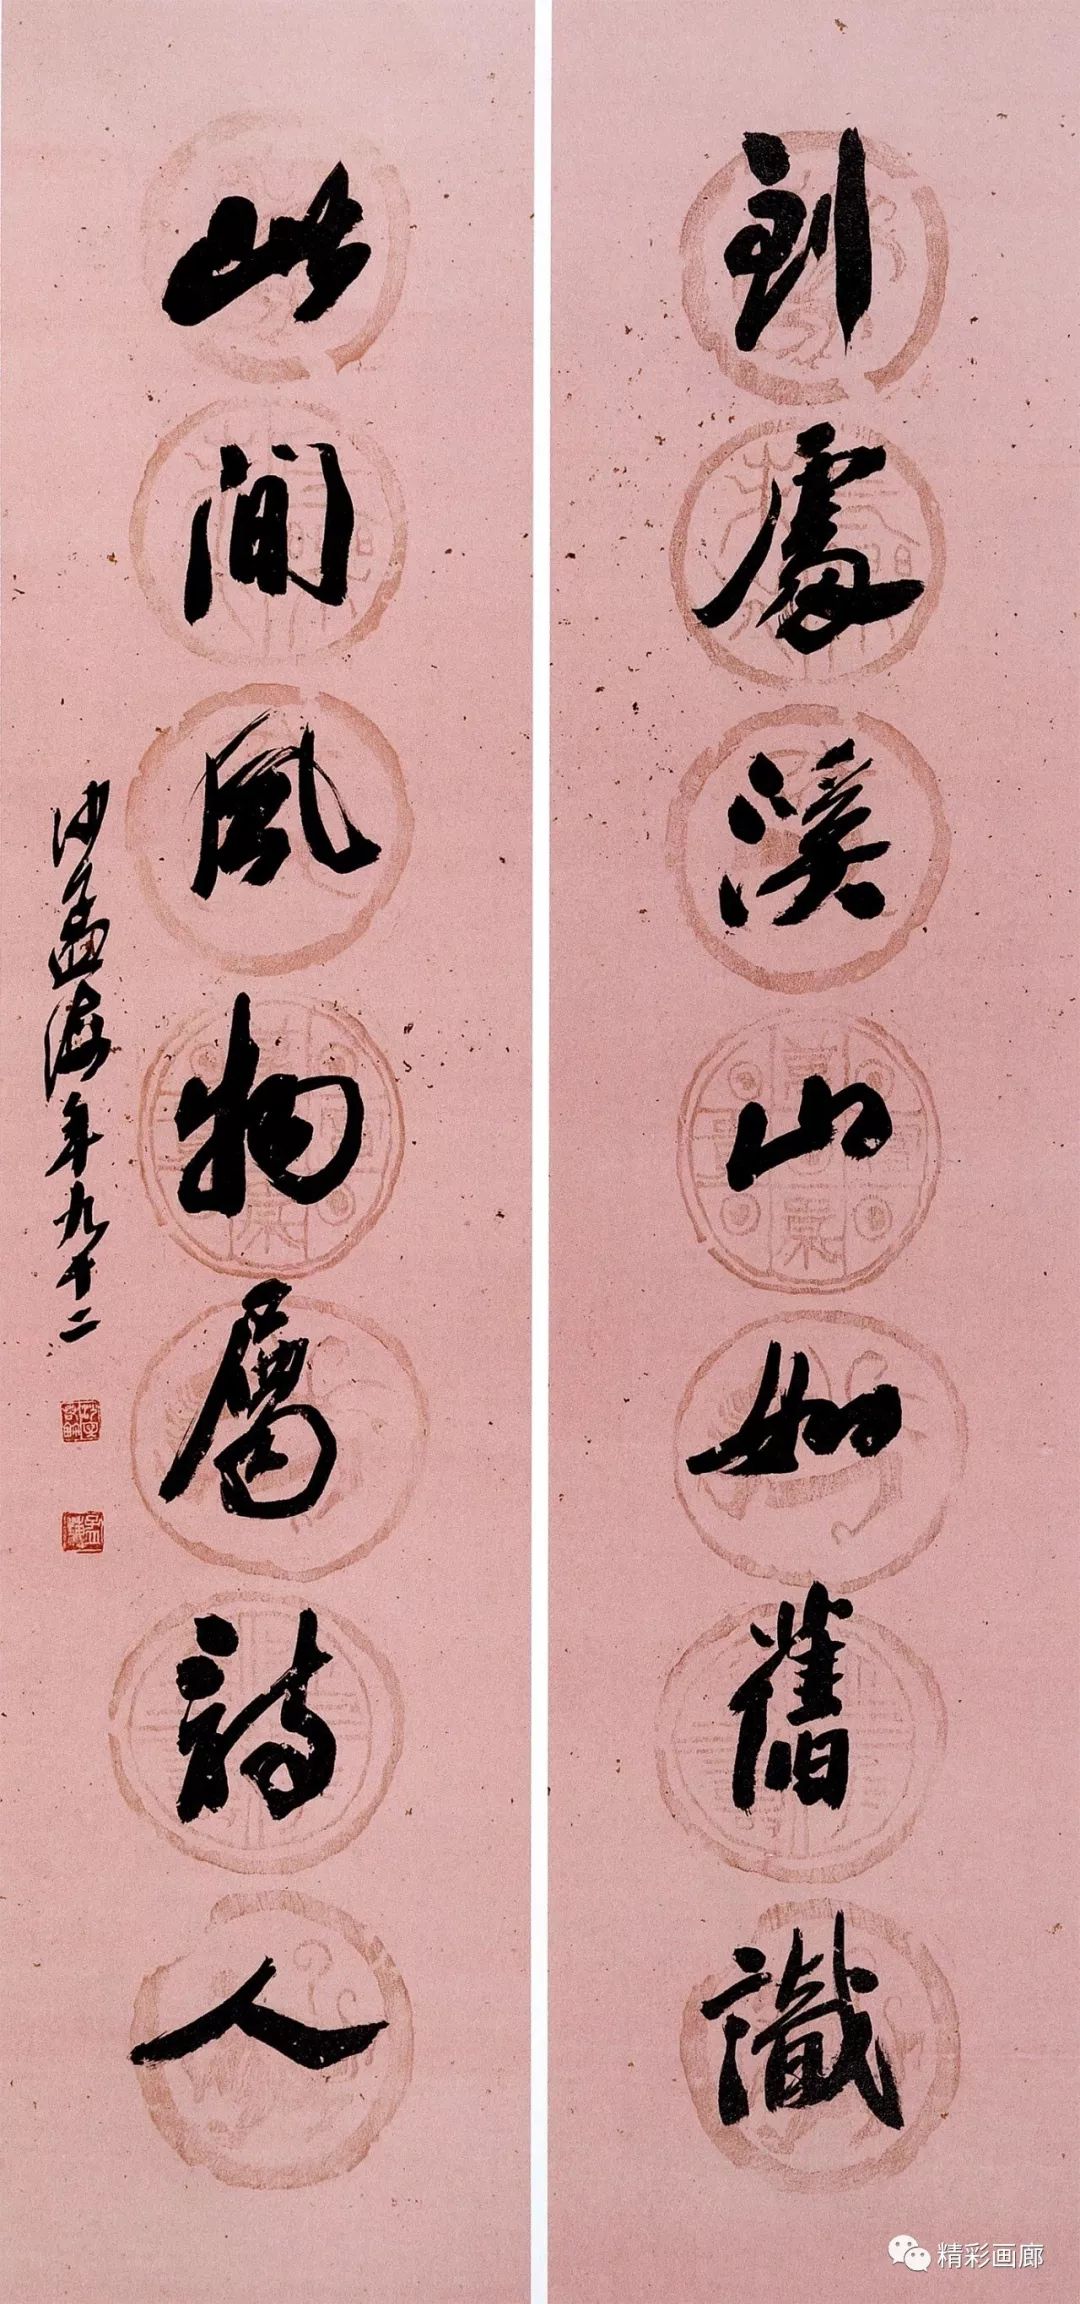 到處溪山如舊識
此間風物屬詩人
沙孟海年九十二
孟海
精彩画廊